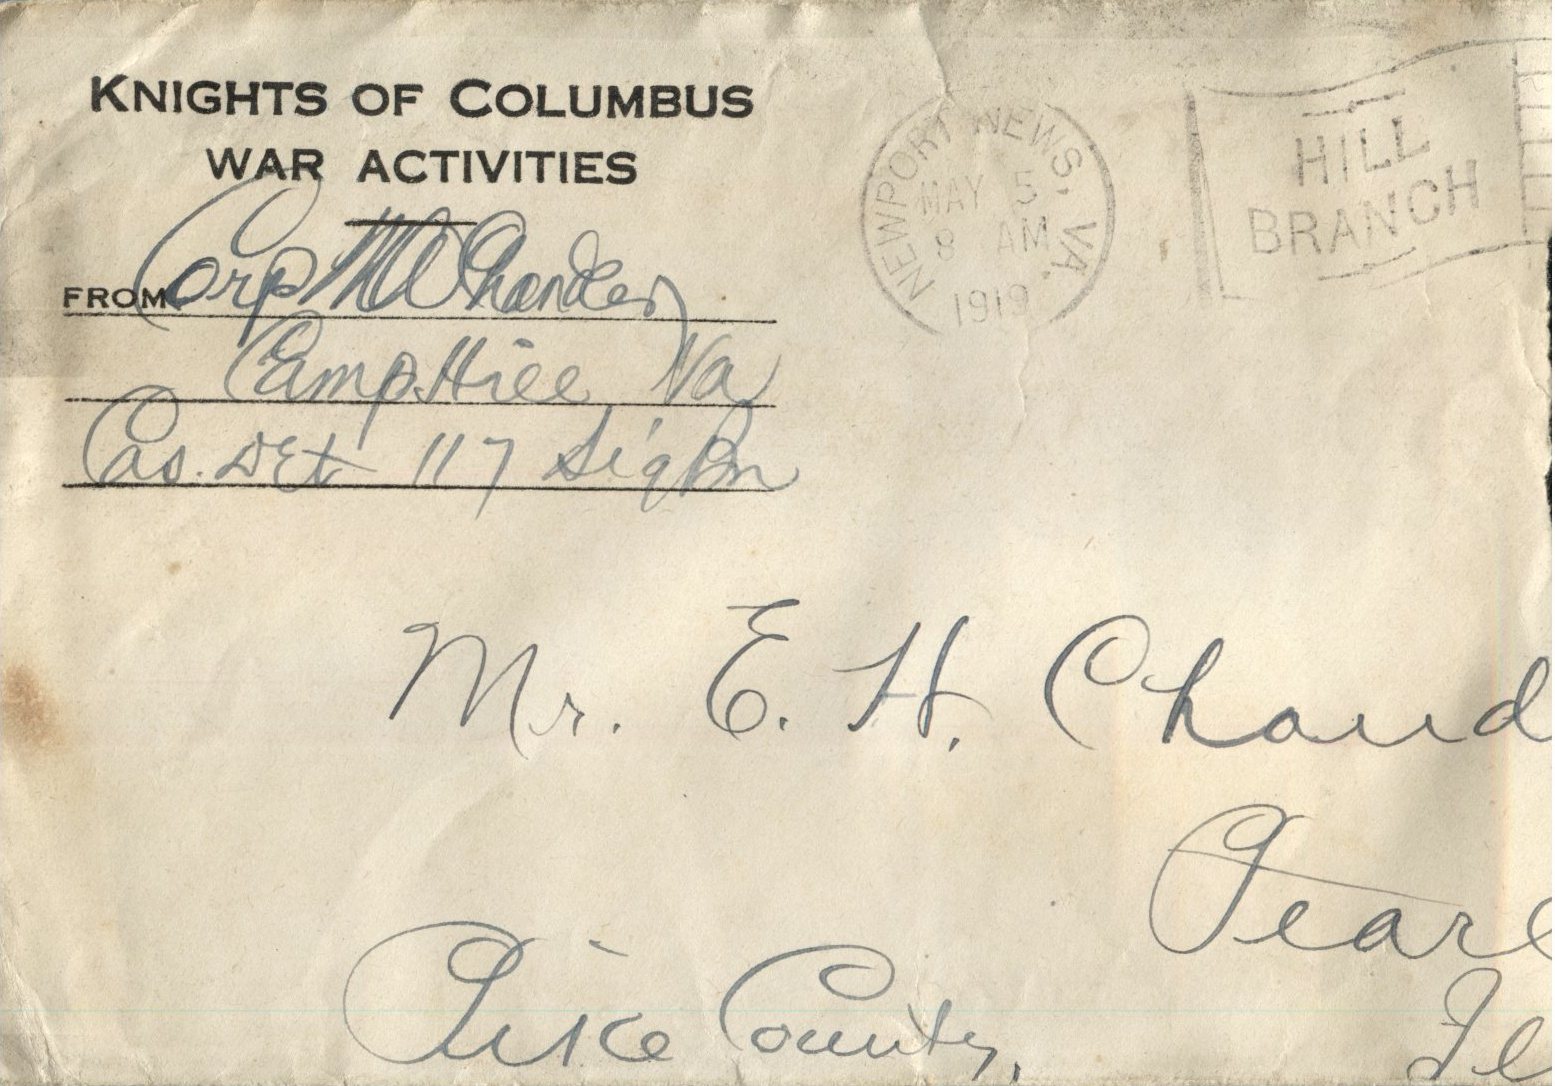 KNIGHTS OF COLUMBUS
WAR ACTIVITIES
FROM Corp M Chandler
Camp Hill Va
Cas. Det 117 Sig Bn
NEWPORT NEWS, VA.
MAY 5
8 AM
1919
HILL
BRANCH
Mr. E. H. Chand
Pearl
Pike County,
Il